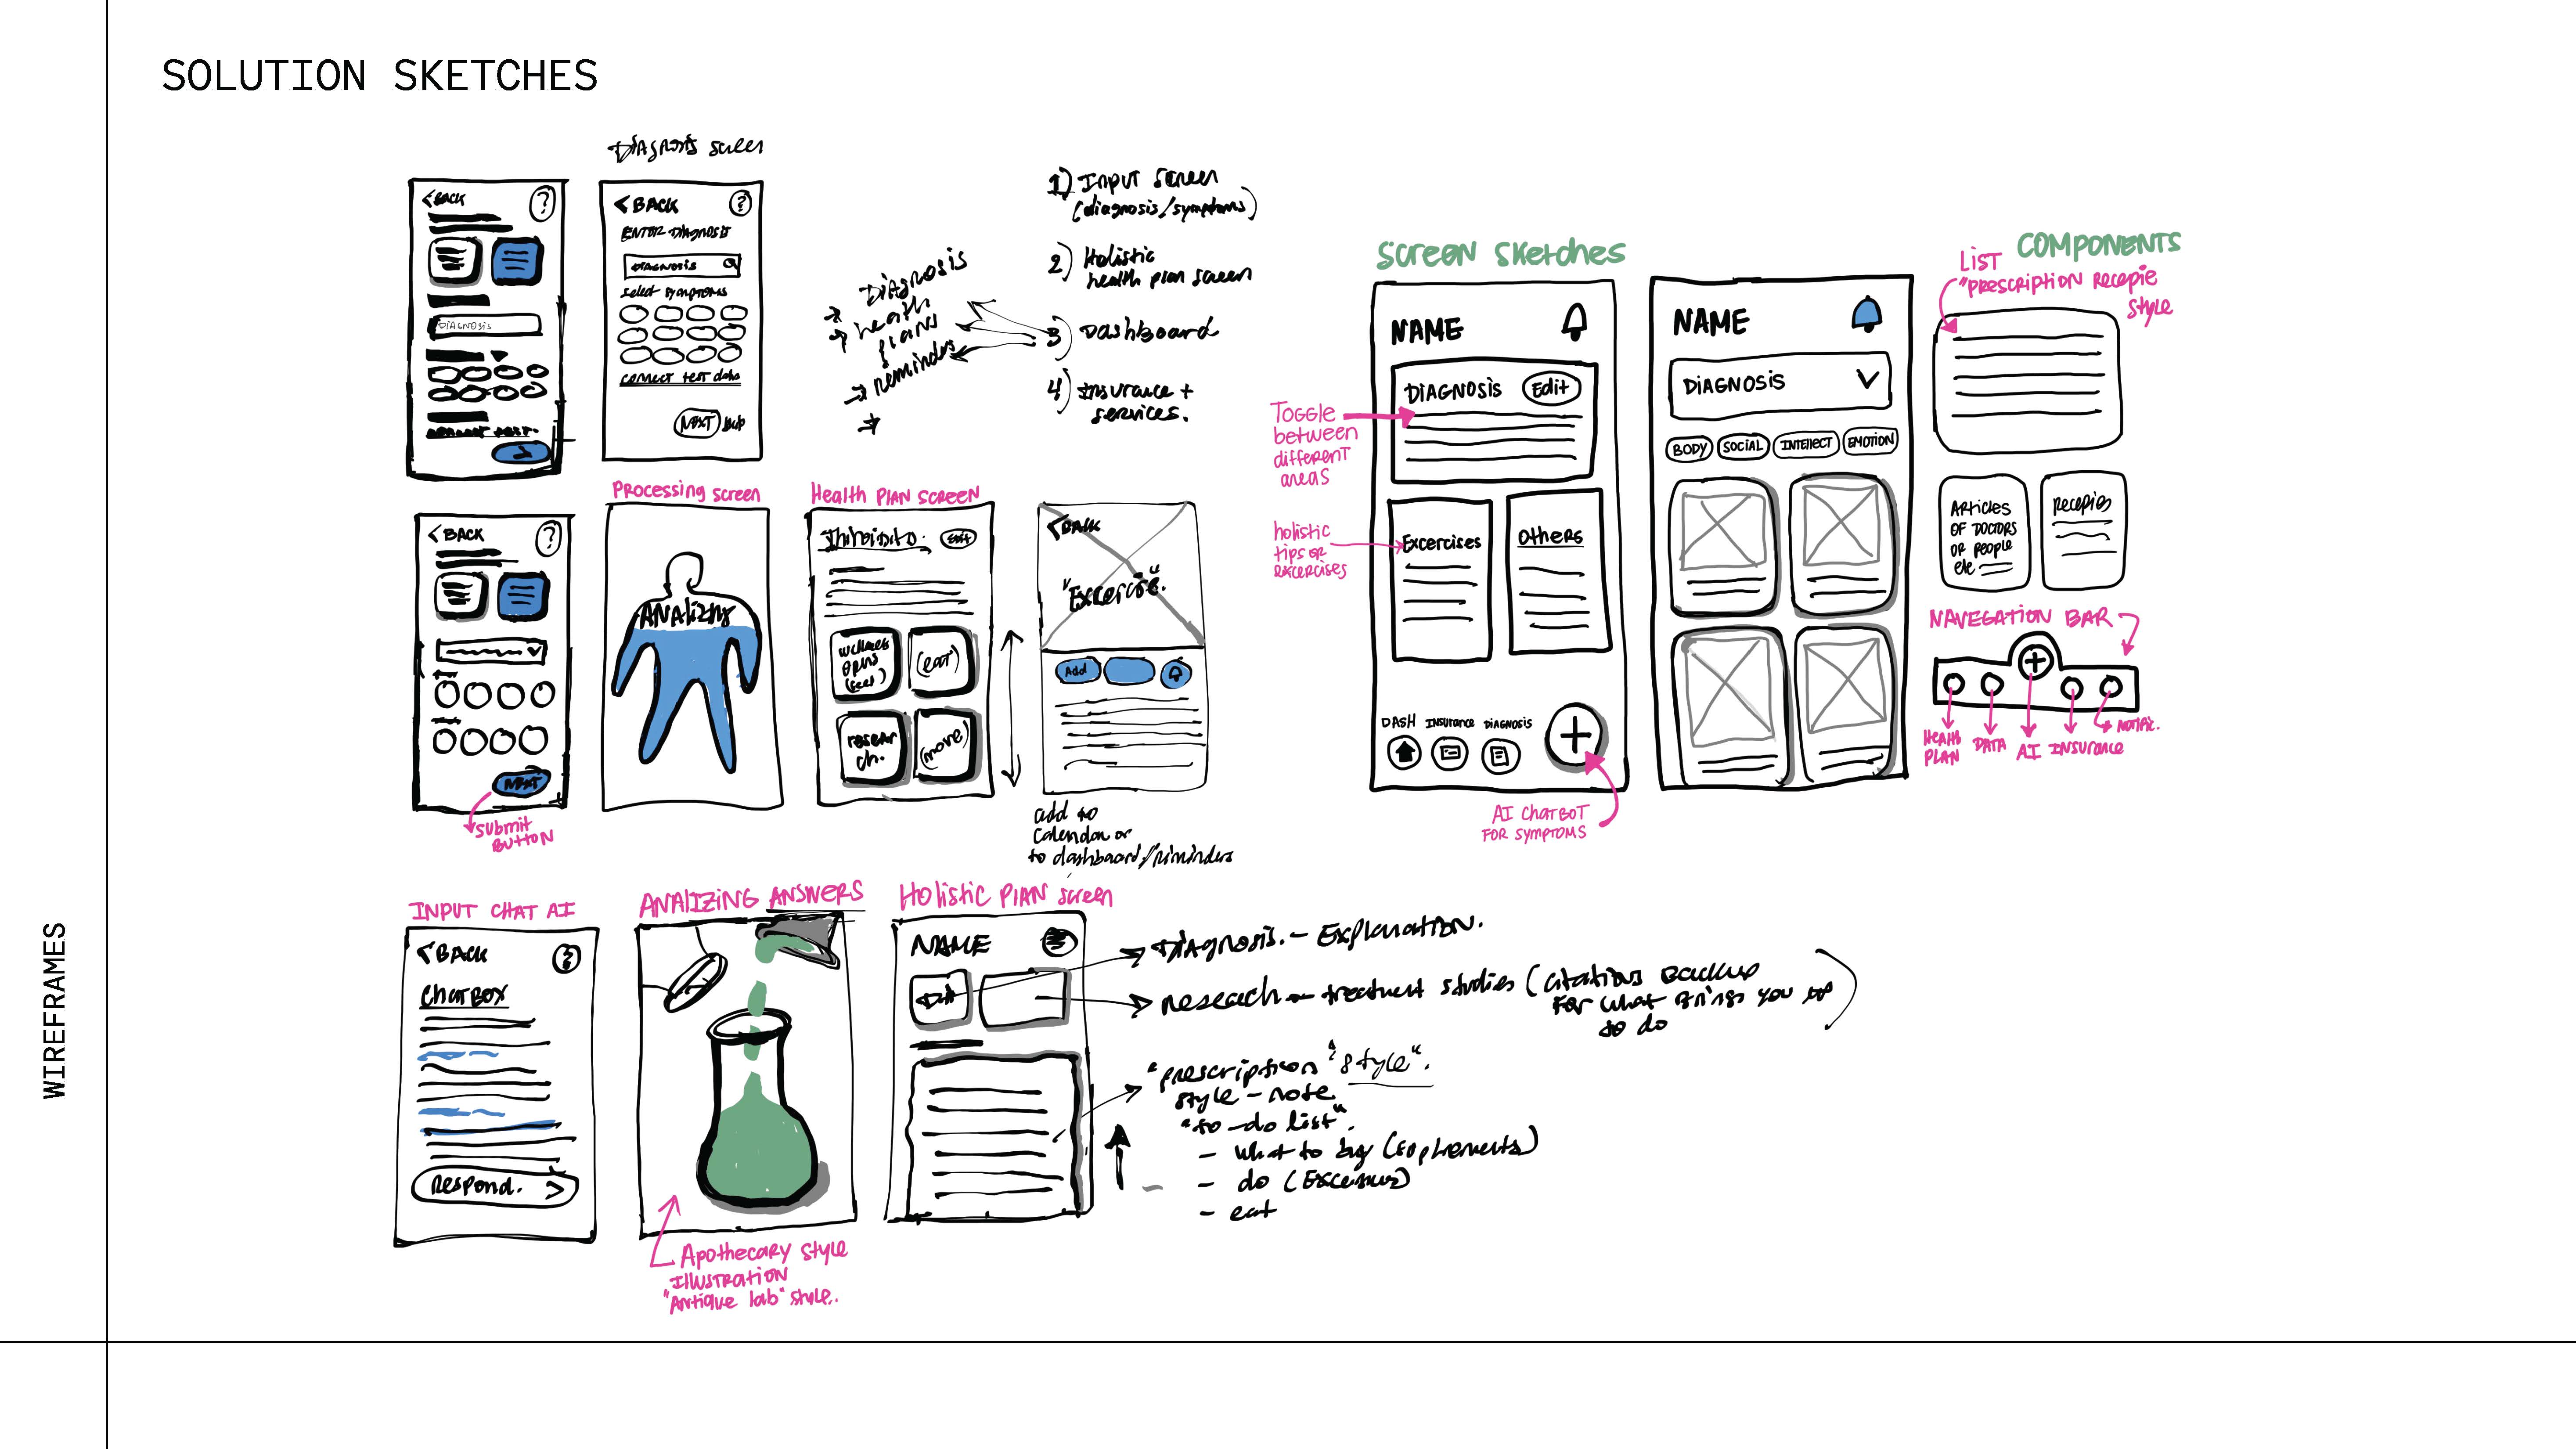 SOLUTION SKETCHES
WIREFRAMES
<BACK
?
DIAGNOSIS
Diagnosis
<BACK
?
ENTER DIAGNOSIS
DIAGNOSIS
select symptoms
connect test data
NEXT
→ Diagnosis
→ health
plans
→ reminders
→
1) Input screen
(diagnosis/symptoms)
2) Holistic
health plan screen
3) Dashboard
4) Insurance +
services.
<BACK
?
NEXT
submit
BUTTON
Processing screen
ANALIZING
Health PLAN SCREEN
Edit
(eat)
resear
ch.
(move)
<BACK
"Excercise."
Add
add to
Calendar or
to dashboard/riminders
INPUT CHAT AI
<BACK
?
CHATBOX
Respond. >
ANALIZING ANSWERS
Apothecary style
ILLUSTRATION
"Antique lab" style.
Holistic PLAN screen
NAME
Diagnosis. - Explanation.
Reseach - treatment studies (citations backup
For what brings you
to do
"prescription "style".
style - note
"to-do list".
- what to buy (suplements)
- do (Excersus)
- eat
Screen Sketches
NAME
DIAGNOSIS Edit
Toggle
between
different
areas
holistic
tips or
excercises
Excercises
Others
DASH INSURANCE DIAGNOSIS
+
AI CHATBOT
FOR SYMPTOMS
NAME
DIAGNOSIS
BODY SOCIAL INTELLECT EMOTION
COMPONENTS
LIST
"PRESCRIPTION RECEPIE
STYLE
ARTICLES
OF DOCTORS
OR PEOPLE
etc
Recepies
NAVEGATION BAR
+
HEALTH
PLAN
DATA
AI
INSURANCE
NOTIFIC.